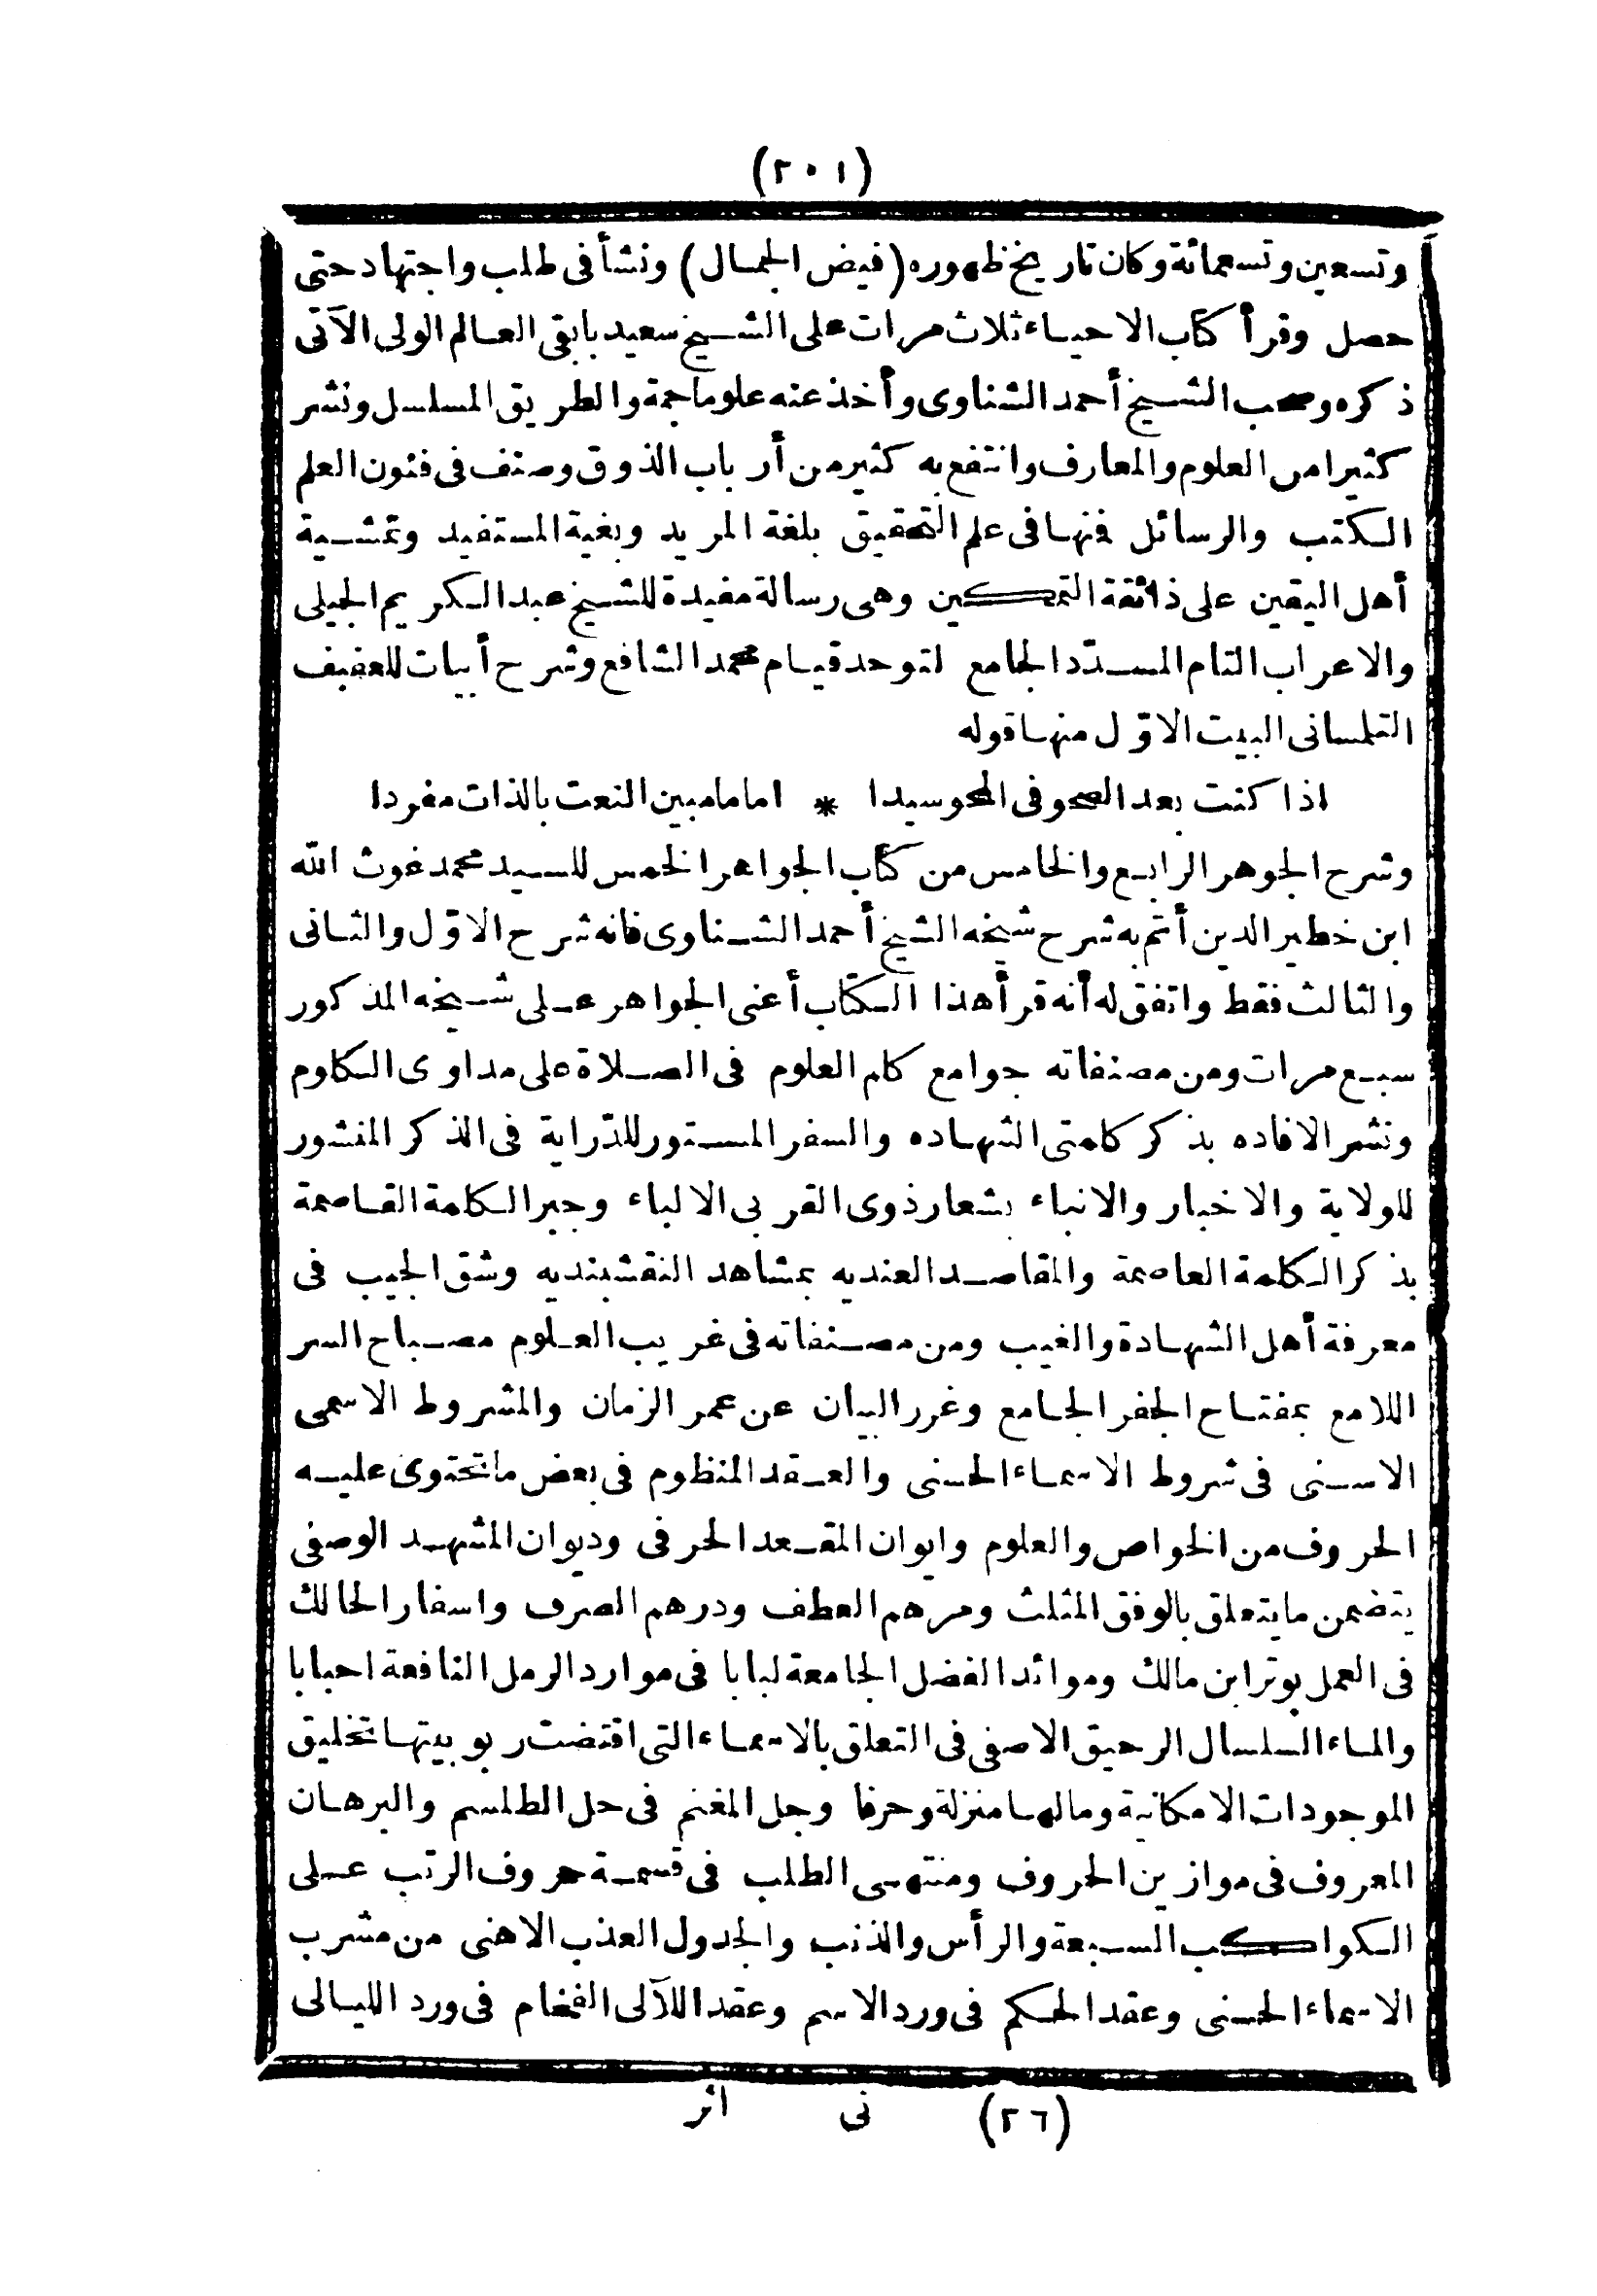 (٢٠١)
وتسعين وتسعمائة وكان تاريخ ظهوره (فيض الجمال) ونشأ فى طلب واجتهاد حتى
حصل وقرأ كتاب الاحياء ثلاث مرات على الشيخ سعيد بابقى العالم الولى الآتى
ذكره وصحب الشيخ أحمد الشناوى وأخذ عنه علوما جمة والطريق المسلسل ونشر
كثيرا من العلوم والمعارف وانتفع به كثير من أرباب الذوق وصنف فى فنون العلم
الكتب والرسائل فنها فى علم التحقيق بلغة المريد وبغية المستفيد وتمشية
أهل اليقين على ذائقة التمكين وهى رسالة مفيدة للشيخ عبد الكريم الجيلى
والاعراب التام المسدّد الجامع لتوحد قيام محمد الشافع وشرح أبيات للعفيف
التلمسانى البيت الاوّل منها قوله
اذا كنت بعد الصحو فى المحو سيدا * اماما مبين النعت بالذات مفردا
وشرح الجوهر الرابع والخامس من كتاب الجواهر الخمس للسيد محمد غوث الله
ابن خطير الدين أتم به شرح شيخه الشيخ أحمد الشناوى فانه شرح الاوّل والثانى
والثالث فقط واتفق له أنه قرأ هذا الكتاب أعنى الجواهر على شيخه المذكور
سبع مرات ومن مصنفاته جوامع كلم العلوم فى الصلاة على مداوى الكلوم
ونشر الافاده بذكر كلمتى الشهاده والسفر المستور للدّراية فى الذكر المنشور
للولاية والاخبار والانباء بشعار ذوى القربى الالباء وجبر الكلمة القاصمة
بذكر الكلمة العاصمة والمقاصد العنديه بمشاهد النقشبنديه وشق الجيب فى
معرفة أهل الشهادة والغيب ومن مصنفاته فى غريب العلوم مصباح السر
اللامع بمفتاح الجفر الجامع وغرر البيان عن عمر الزمان والمشروط الاسمى
الاسنى فى شروط الاسماء الحسنى والعقد المنظوم فى بعض ما تحتوى عليه
الحروف من الخواص والعلوم وايوان المقعد الحرفى وديوان المشهد الوصفى
يتضمن ما يتعلق بالوفق المثلث ومرهم العطف ودرهم الصرف واسفار الحالك
فى العمل بوتر ابن مالك وموائد الفضل الجامعة لبابا فى موارد الرمل النافعة احبابا
والماء السلسال الرحيق الاصفى فى التعلق بالاسماء التى اقتضت ربوبيتها تخليق
الموجودات الامكانية وما لها منزلة وحرفا وجل المغنم فى حل الطلسم والبرهان
المعروف فى موازين الحروف ومنتهى الطلب فى قسمة حروف الرتب على
الكواكب السبعة والرأس والذنب والجدول العذب الاهنى من مشرب
الاسماء الحسنى وعقد الحكم فى ورد الاسم وعقد اللآلى الفخام فى ورد الليالى
(٢٦) نى اثر